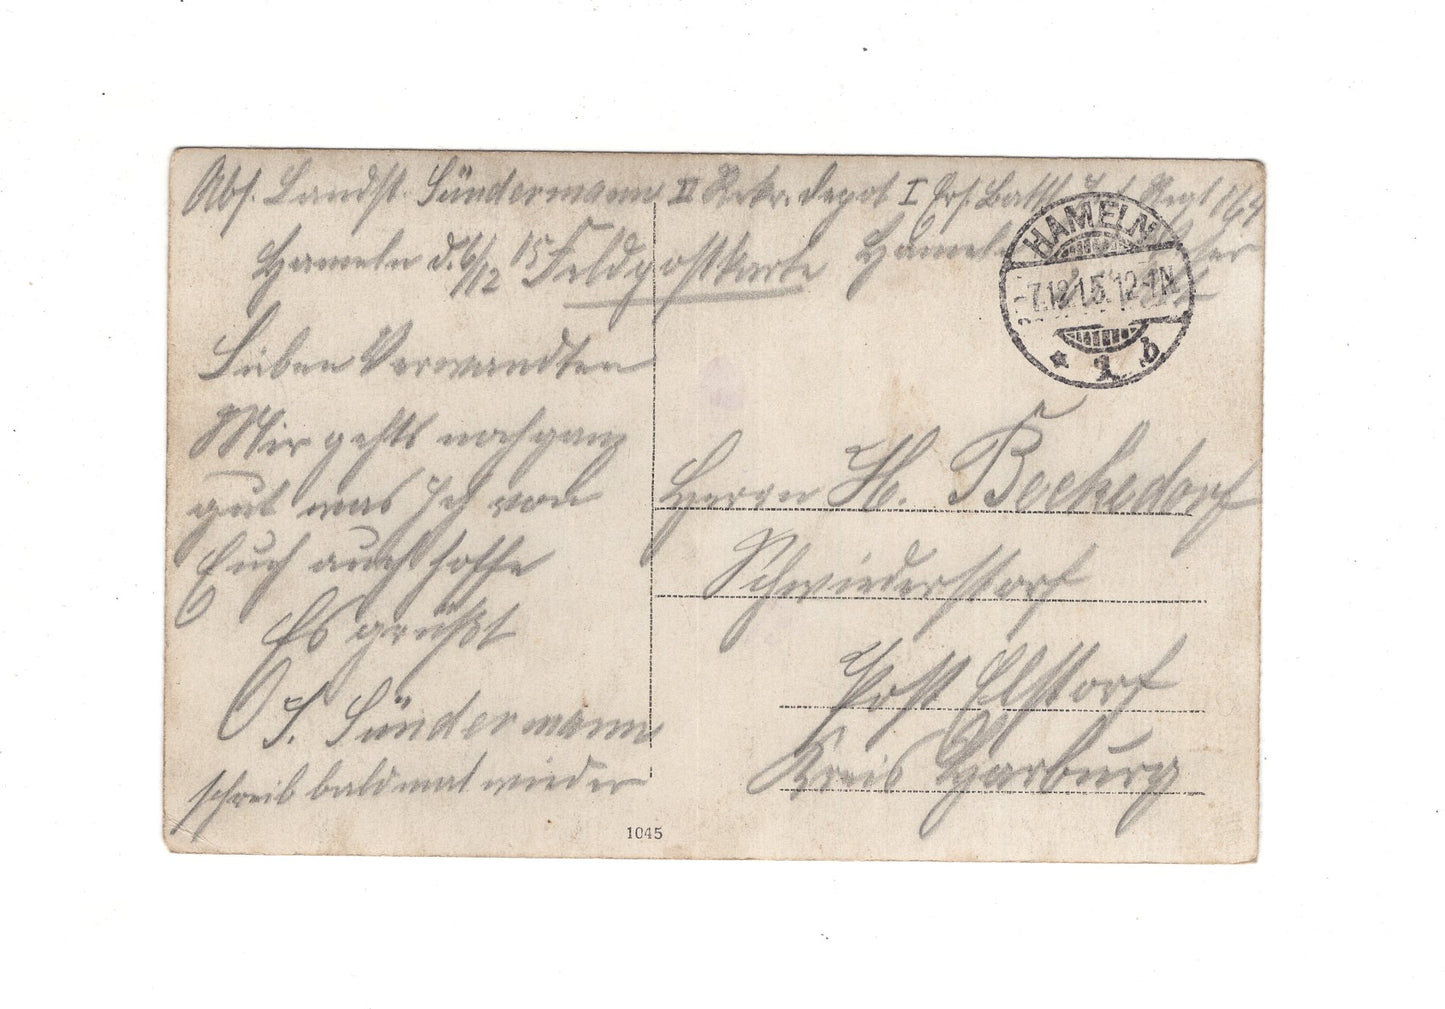 Abs. Landst. Sündermann II Rekr. Depot I Ers. Batl. Inf. Regt 164
Hameln
Hameln d. 6/12 15
Feldpostkarte
HAMELN
7.12.15. 12-1N
* 2 b
Lieben Verwandten
Mir gehts noch ganz
gut was Ich von
Euch auch hoffe
Es grüßt
S. Sündermann
schreib bald mal wieder
Herrn H. Bockedorf
Schwiederstorf
Post Elstorf
Kreis Harburg
1045